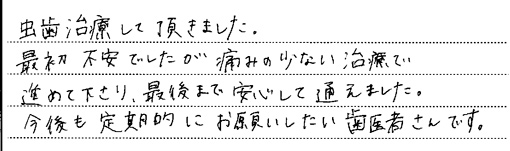 虫歯治療して頂きました。
最初不安でしたが痛みの少ない治療で
進めて下さり、最後まで安心して通えました。
今後も定期的にお願いしたい歯医者さんです。